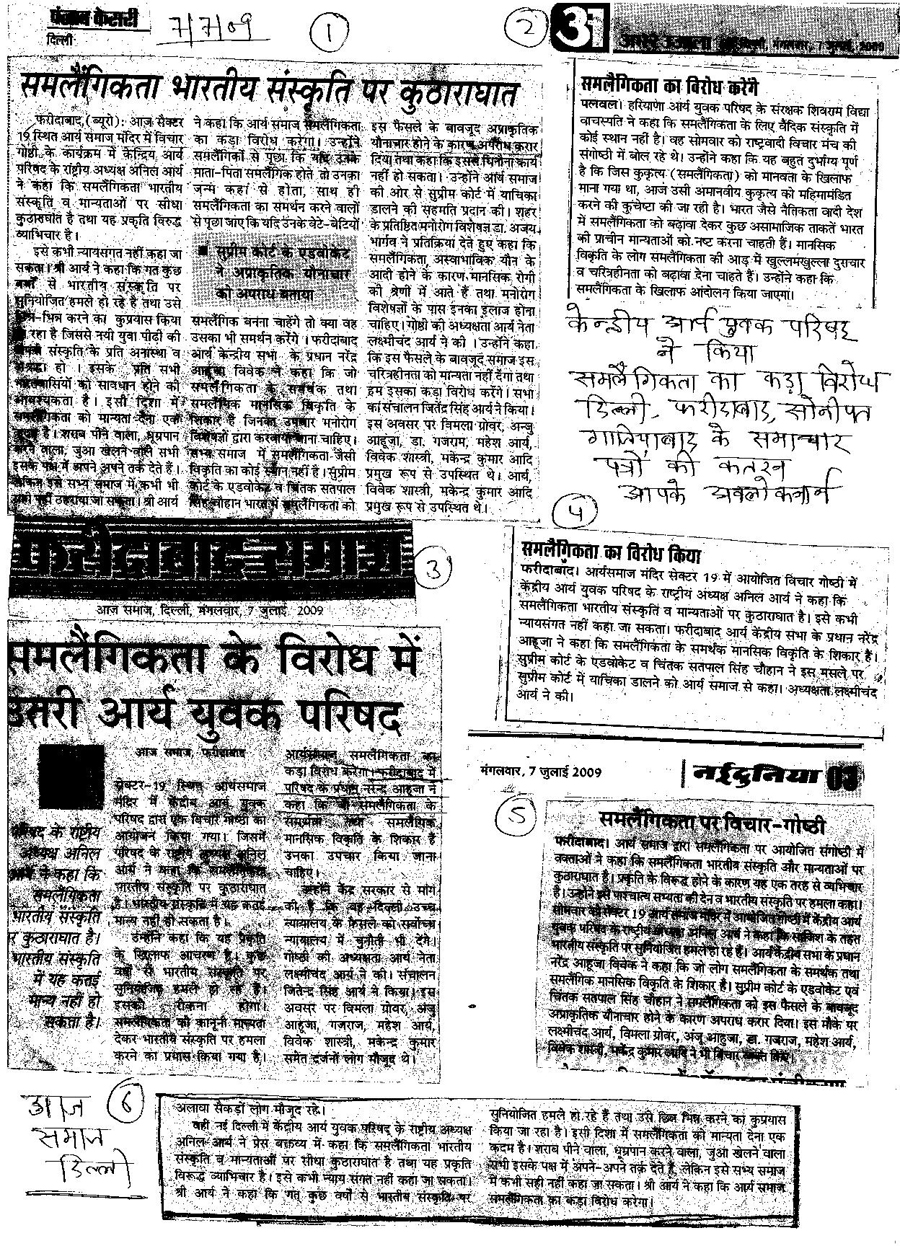 पंजाब केसरी
दिल्ली
7/7/09
1
समलैंगिकता भारतीय संस्कृति पर कुठाराघात
फरीदाबाद,(ब्यूरो): आज सैक्टर
19 स्थित आर्य समाज मंदिर में विचार
गोष्ठी के कार्यक्रम में केन्द्रिय आर्य
परिषद के राष्ट्रीय अध्यक्ष अनिल आर्य
ने कहा कि समलैंगिकता भारतीय
संस्कृति व मान्यताओं पर सीधा
कुठाराघात है तथा यह प्रकृति विरुद्ध
व्याभिचार है।
इसे कभी न्यायसंगत नहीं कहा जा
सकता। श्री आर्य ने कहा कि गत कुछ
वर्षों से भारतीय संस्कृति पर
सुनियोजित हमले हो रहे है तथा उसे
छिन्न-भिन्न करने का कुप्रयास किया
जा रहा है जिससे नयी युवा पीढ़ी की
संस्कृति के प्रति अनास्था व
हो । इसके प्रति सभी
को सावधान होने की
आवश्यकता है। इसी दिशा में
समलैंगिकता को मान्यता देना एक
है। शराब पीने वाला, धूम्रपान
करने वाला, जुआ खेलने वाले सभी
इसके पक्ष में अपने अपने तर्क देते है,
लेकिन इसे सभ्य समाज में कभी भी
सही नहीं ठहराया जा सकता। श्री आर्य
ने कहा कि आर्य समाज समलैंगिकता
का कड़ा विरोध करेगा। उन्होंने
समलैंगिकों से पूछा कि यदि उनके
माता-पिता समलैंगिक होते तो उनका
जन्म कहां से होता, साथ ही
समलैंगिकता का समर्थन करने वालों
से पूछा जाए कि यदि उनके बेटे-बेटियों
■ सुप्रीम कोर्ट के एडवोकेट
ने अप्राकृतिक यौनाचार
को अपराध बताया
समलैंगिक बनना चाहेंगे तो क्या वह
उसका भी समर्थन करेंगे । फरीदाबाद
आर्य केन्द्रीय सभा के प्रधान नरेंद्र
आहूजा विवेक ने कहा कि जो
समलैंगिकता के समर्थक तथा
समलैंगिक मानसिक विकृति के
शिकार है जिनका उपचार मनोरोग
विशेषज्ञों द्वारा करवाया जाना चाहिए।
सभ्य समाज में समलैंगिकता जैसी
विकृति का कोई स्थान नहीं है। सुप्रीम
कोर्ट के एडवोकेट व चिंतक सतपाल
सिंह चौहान भारत में समलैंगिकता को
इस फैसले के बावजूद अप्राकृतिक
यौनाचार होने के कारण अपराध करार
दिया तथा कहा कि इससे घिनौना कार्य
नहीं हो सकता। उन्होंने आर्य समाज
की ओर से सुप्रीम कोर्ट में याचिका
डालने की सहमति प्रदान की। शहर
के प्रतिष्ठित मनोरोग विशेषज्ञ डा. अजय
भार्गव ने प्रतिक्रिया देते हुए कहा कि
समलैंगिकता, अस्वाभाविक यौन के
आदी होने के कारण मानसिक रोगी
की श्रेणी में आते हैं तथा मनोरोग
विशेषज्ञों के पास इनका इलाज होना
चाहिए। गोष्ठी की अध्यक्षता आर्य नेता
लक्ष्मीचंद आर्य ने की । उन्होंने कहा
कि इस फैसले के बावजूद समाज इस
चरित्रहीनता को मान्यता नहीं देगा तथा
हम इसका कड़ा विरोध करेंगे। सभा
का संचालन जितेंद्र सिंह आर्य ने किया।
इस अवसर पर विमला ग्रोवर, अन्जु
आहूजा, डा. गजराम, महेश आर्य,
विवेक शास्त्री, मकेन्द्र कुमार आदि
प्रमुख रूप से उपस्थित थे। आर्य,
विवेक शास्त्री, मकेन्द्र कुमार आदि
प्रमुख रूप से उपस्थित थे।
2
अमर उजाला मंगलवार, 7 जुलाई, 2009
समलैंगिकता का विरोध करेंगे
पलवल। हरियाणा आर्य युवक परिषद के संरक्षक शिवराम विद्या
वाचस्पति ने कहा कि समलैंगिकता के लिए वैदिक संस्कृति में
कोई स्थान नहीं है। वह सोमवार को राष्ट्रवादी विचार मंच की
संगोष्ठी में बोल रहे थे। उन्होंने कहा कि यह बहुत दुर्भाग्य पूर्ण
है कि जिस कुकृत्य (समलैंगिकता) को मानवता के खिलाफ
माना गया था, आज उसी अमानवीय कुकृत्य को महिमामंडित
करने की कुचेष्टा की जा रही है। भारत जैसे नैतिकता वादी देश
में समलैंगिकता को बढ़ावा देकर कुछ असामाजिक ताकतें भारत
की प्राचीन मान्यताओं को नष्ट करना चाहती हैं। मानसिक
विकृति के लोग समलैंगिकता की आड़ में खुल्लमखुल्ला दुराचार
व चरित्रहीनता को बढ़ावा देना चाहते हैं। उन्होंने कहा कि
समलैंगिकता के खिलाफ आंदोलन किया जाएगा।
केन्द्रीय आर्य युवक परिषद्
ने किया
समलैंगिकता का कड़ा विरोध
दिल्ली, फरीदाबाद, सोनीपत
गाजियाबाद के समाचार
पत्रों की कतरन
आपके अवलोकनार्थ
4
समलैंगिकता का विरोध किया
फरीदाबाद। आर्यसमाज मंदिर सेक्टर 19 में आयोजित विचार गोष्ठी में
केंद्रीय आर्य युवक परिषद के राष्ट्रीय अध्यक्ष अनिल आर्य ने कहा कि
समलैंगिकता भारतीय संस्कृति व मान्यताओं पर कुठाराघात है। इसे कभी
न्यायसंगत नहीं कहा जा सकता। फरीदाबाद आर्य केंद्रीय सभा के प्रधान नरेंद्र
आहूजा ने कहा कि समलैंगिकता के समर्थक मानसिक विकृति के शिकार हैं।
सुप्रीम कोर्ट के एडवोकेट व चिंतक सतपाल सिंह चौहान ने इस मसले पर
सुप्रीम कोर्ट में याचिका डालने को आर्य समाज से कहा। अध्यक्षता लक्ष्मीचंद
आर्य ने की।
फरीदाबाद समाज
3
आज समाज, दिल्ली, मंगलवार, 7 जुलाई 2009
समलैंगिकता के विरोध में
उतरी आर्य युवक परिषद
परिषद के राष्ट्रीय
अध्यक्ष अनिल
आर्य ने कहा कि
समलैंगिकता
भारतीय संस्कृति
पर कुठाराघात है।
भारतीय संस्कृति
में यह कतई
मान्य नहीं हो
सकता है।
आज समाज, फरीदाबाद
सेक्टर-19 स्थित आर्यसमाज
मंदिर में केंद्रीय आर्य युवक
परिषद द्वारा एक विचार गोष्ठी का
आयोजन किया गया। जिसमें
परिषद के राष्ट्रीय अध्यक्ष अनिल
आर्य ने कहा कि समलैंगिकता
भारतीय संस्कृति पर कुठाराघात
है। भारतीय संस्कृति में यह कतई
मान्य नहीं हो सकता है।
उन्होंने कहा कि यह प्रकृति
के खिलाफ आचरण है। कुछ
वर्षों से भारतीय संस्कृति पर
सुनियोजित हमले हो रहे हैं।
इसको रोकना होगा।
समलैंगिकता को कानूनी मान्यता
देकर भारतीय संस्कृति पर हमला
करने का प्रयास किया गया है।
आर्यसमाज समलैंगिकता का
कड़ा विरोध करेगा। फरीदाबाद में
परिषद के प्रधान नरेन्द्र आहूजा ने
कहा कि जो समलैंगिकता के
समर्थक तथा समलैंगिक
मानसिक विकृति के शिकार हैं
उनका उपचार किया जाना
चाहिए।
उन्होंने केंद्र सरकार से मांग
की है कि वह दिल्ली उच्च
न्यायालय के फैसले को सर्वोच्च
न्यायालय में चुनौती भी देंगे।
गोष्ठी की अध्यक्षता आर्य नेता
लक्ष्मीचंद आर्य ने की। संचालन
जितेन्द्र सिंह आर्य ने किया। इस
अवसर पर विमला ग्रोवर, अंजु
आहूजा, गजराज, महेश आर्य,
विवेक शास्त्री, मकेन्द्र कुमार
समेत दर्जनों लोग मौजूद थे।
मंगलवार, 7 जुलाई 2009
नईदुनिया 03
5
समलैंगिकता पर विचार-गोष्ठी
फरीदाबाद। आर्य समाज द्वारा समलैंगिकता पर आयोजित संगोष्ठी में
वक्ताओं ने कहा कि समलैंगिकता भारतीय संस्कृति और मान्यताओं पर
कुठाराघात है। प्रकृति के विरूद्ध होने के कारण यह एक तरह से व्यभिचार
है। उन्होंने इसे पाश्चात्य सभ्यता की देन व भारतीय संस्कृति पर हमला कहा।
सोमवार को सेक्टर 19 आर्य समाज मंदिर में आयोजित गोष्ठी में केंद्रीय आर्य
युवक परिषद के राष्ट्रीय अध्यक्ष अनिल आर्य ने कहा कि साजिश के तहत
भारतीय संस्कृति पर सुनियोजित हमले हो रहे हैं। आर्य केंद्रीय सभा के प्रधान
नरेंद्र आहूजा विवेक ने कहा कि जो लोग समलैंगिकता के समर्थक तथा
समलैंगिक मानसिक विकृति के शिकार है। सुप्रीम कोर्ट के एडवोकेट एवं
चिंतक सतपाल सिंह चौहान ने समलैंगिकता को इस फैसले के बावजूद
अप्राकृतिक यौनाचार होने के कारण अपराध करार दिया। इस मौके पर
लक्ष्मीचंद आर्य, विमला ग्रोवर, अंजू आहूजा, डा. गजराज, महेश आर्य,
विवेक शास्त्री, मकेंद्र कुमार आदि ने भी विचार व्यक्त किए।
आज
समाज
दिल्ली
6
अलावा सैकड़ों लोग मौजूद रहे।
वहीं नई दिल्ली में केंद्रीय आर्य युवक परिषद् के राष्ट्रीय अध्यक्ष
अनिल आर्य ने प्रेस वक्तव्य में कहा कि समलैंगिकता भारतीय
संस्कृति व मान्यताओं पर सीधा कुठाराघात है तथा यह प्रकृति
विरुद्ध व्याभिचार है। इसे कभी न्याय संगत नहीं कहा जा सकता।
श्री आर्य ने कहा कि गत् कुछ वर्षों से भारतीय संस्कृति पर
सुनियोजित हमले हो रहे हैं तथा उसे छिन्न भिन्न करने का कुप्रयास
किया जा रहा है। इसी दिशा में समलैंगिकता को मान्यता देना एक
कदम है। शराब पीने वाला, धूम्रपान करने वाला, जुआ खेलने वाला
सभी इसके पक्ष में अपने-अपने तर्क देते है, लेकिन इसे सभ्य समाज
में कभी सही नहीं कहा जा सकता। श्री आर्य ने कहा कि आर्य समाज
समलैंगिकता का कड़ा विरोध करेगा।